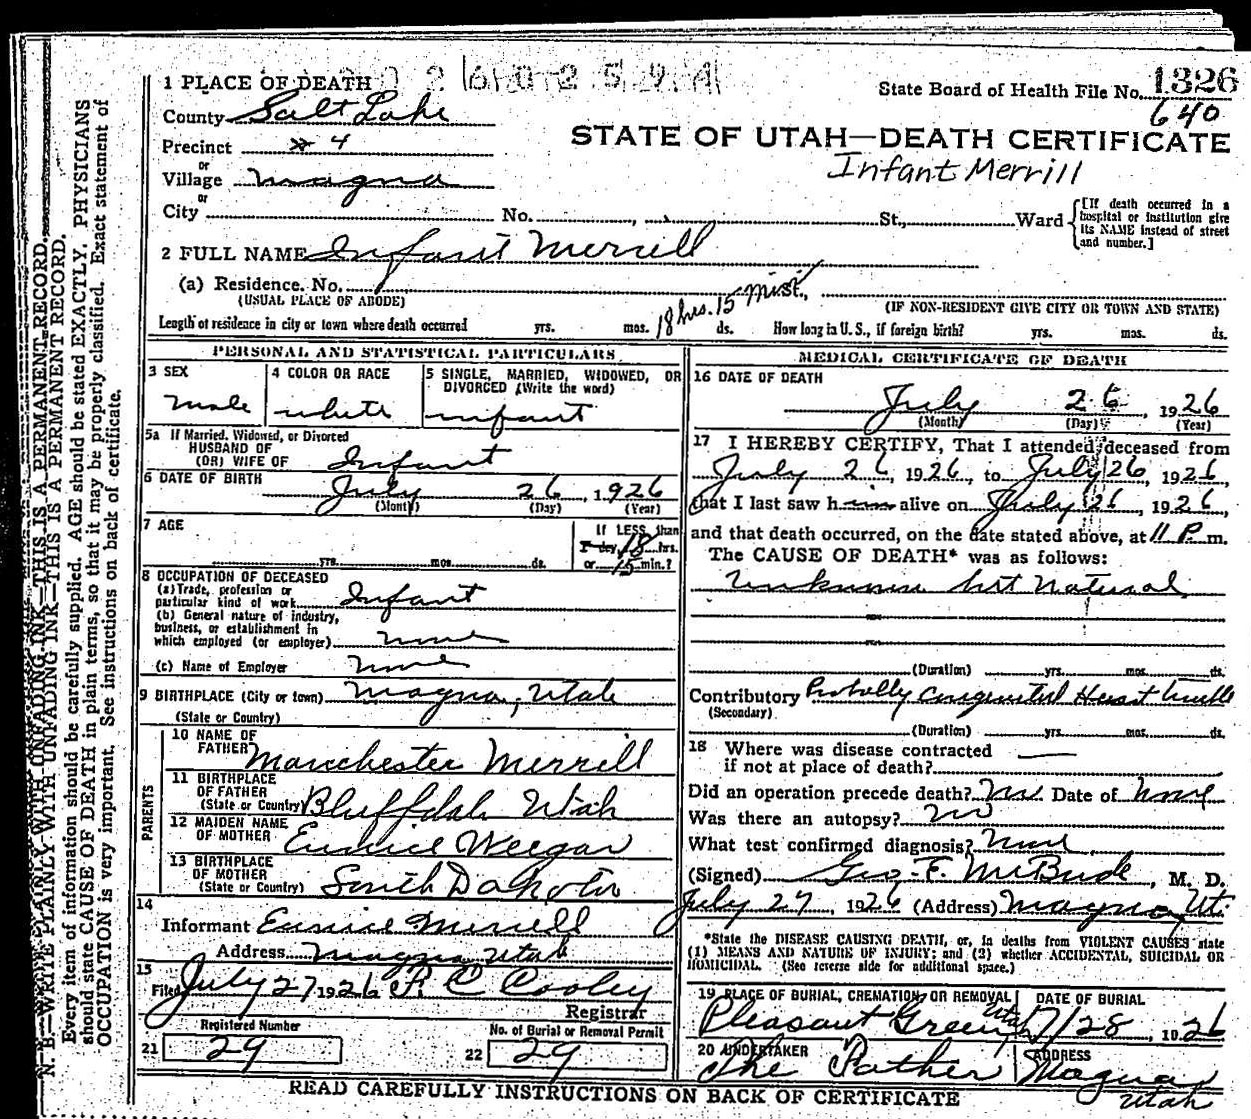 1 PLACE OF DEATH
State Board of Health File No. 1326
640
County Salt Lake
STATE OF UTAH—DEATH CERTIFICATE
Precinct # 4
Infant Merrill
or
Village Magna
or
City No. , St., Ward
[If death occurred in a hospital or institution give its NAME instead of street and number.]
2 FULL NAME Infant Merrill
(a) Residence. No.
(USUAL PLACE OF ABODE) (IF NON-RESIDENT GIVE CITY OR TOWN AND STATE)
Length of residence in city or town where death occurred yrs. mos. 18 hrs. 15 Mins. ds. How long in U. S., if foreign birth? yrs. mos. ds.
PERSONAL AND STATISTICAL PARTICULARS
3 SEX 4 COLOR OR RACE 5 SINGLE, MARRIED, WIDOWED, OR
DIVORCED (Write the word)
male white infant
5a If Married, Widowed, or Divorced
HUSBAND OF
(OR) WIFE OF Infant
6 DATE OF BIRTH July 26, 1926
(Month) (Day) (Year)
7 AGE If LESS than
yrs. mos. ds. 1 day, 18 hrs.
or 15 min.?
8 OCCUPATION OF DECEASED
(a) Trade, profession or
particular kind of work Infant
(b) General nature of industry,
business, or establishment in
which employed (or employer) none
(c) Name of Employer None
9 BIRTHPLACE (City or town) Magna, Utah
(State or Country)
PARENTS
10 NAME OF
FATHER Manchester Merrill
11 BIRTHPLACE
OF FATHER
(State or Country) Bluffdale Utah
12 MAIDEN NAME
OF MOTHER Eunice Weegar
13 BIRTHPLACE
OF MOTHER
(State or Country) South Dakota
14
Informant Eunice Merrill
Address Magna Utah
15
Filed July 27 1926 R C Cooley
Registrar
Registered Number No. of Burial or Removal Permit
21 29 22 29
MEDICAL CERTIFICATE OF DEATH
16 DATE OF DEATH
July 26, 1926
(Month) (Day) (Year)
17 I HEREBY CERTIFY, That I attended deceased from
July 26, 1926, to July 26, 1926,
that I last saw him alive on July 26, 1926,
and that death occurred, on the date stated above, at 11 P. m.
The CAUSE OF DEATH* was as follows:
Unknown but Natural
(Duration) yrs. mos. ds.
Contributory Probably Congenital Heart trouble
(Secondary)
(Duration) yrs. mos. ds.
18 Where was disease contracted
if not at place of death?
Did an operation precede death? No Date of None
Was there an autopsy? No
What test confirmed diagnosis? None
(Signed) Geo. F. McBride, M. D.
July 27, 1926 (Address) Magna, Ut.
*State the DISEASE CAUSING DEATH, or, in deaths from VIOLENT CAUSES state
(1) MEANS AND NATURE OF INJURY; and (2) whether ACCIDENTAL, SUICIDAL OR
HOMICIDAL. (See reverse side for additional space.)
19 PLACE OF BURIAL, CREMATION, OR REMOVAL DATE OF BURIAL
Pleasant Green Utah 7/28 1926
20 UNDERTAKER ADDRESS
The Father Magna Utah
READ CAREFULLY INSTRUCTIONS ON BACK OF CERTIFICATE
N. B.—WRITE PLAINLY WITH UNFADING INK—THIS IS A PERMANENT RECORD.
Every item of information should be carefully supplied. AGE should be stated EXACTLY. PHYSICIANS
should state CAUSE OF DEATH in plain terms, so that it may be properly classified. Exact statement of
OCCUPATION is very important. See instructions on back of certificate.